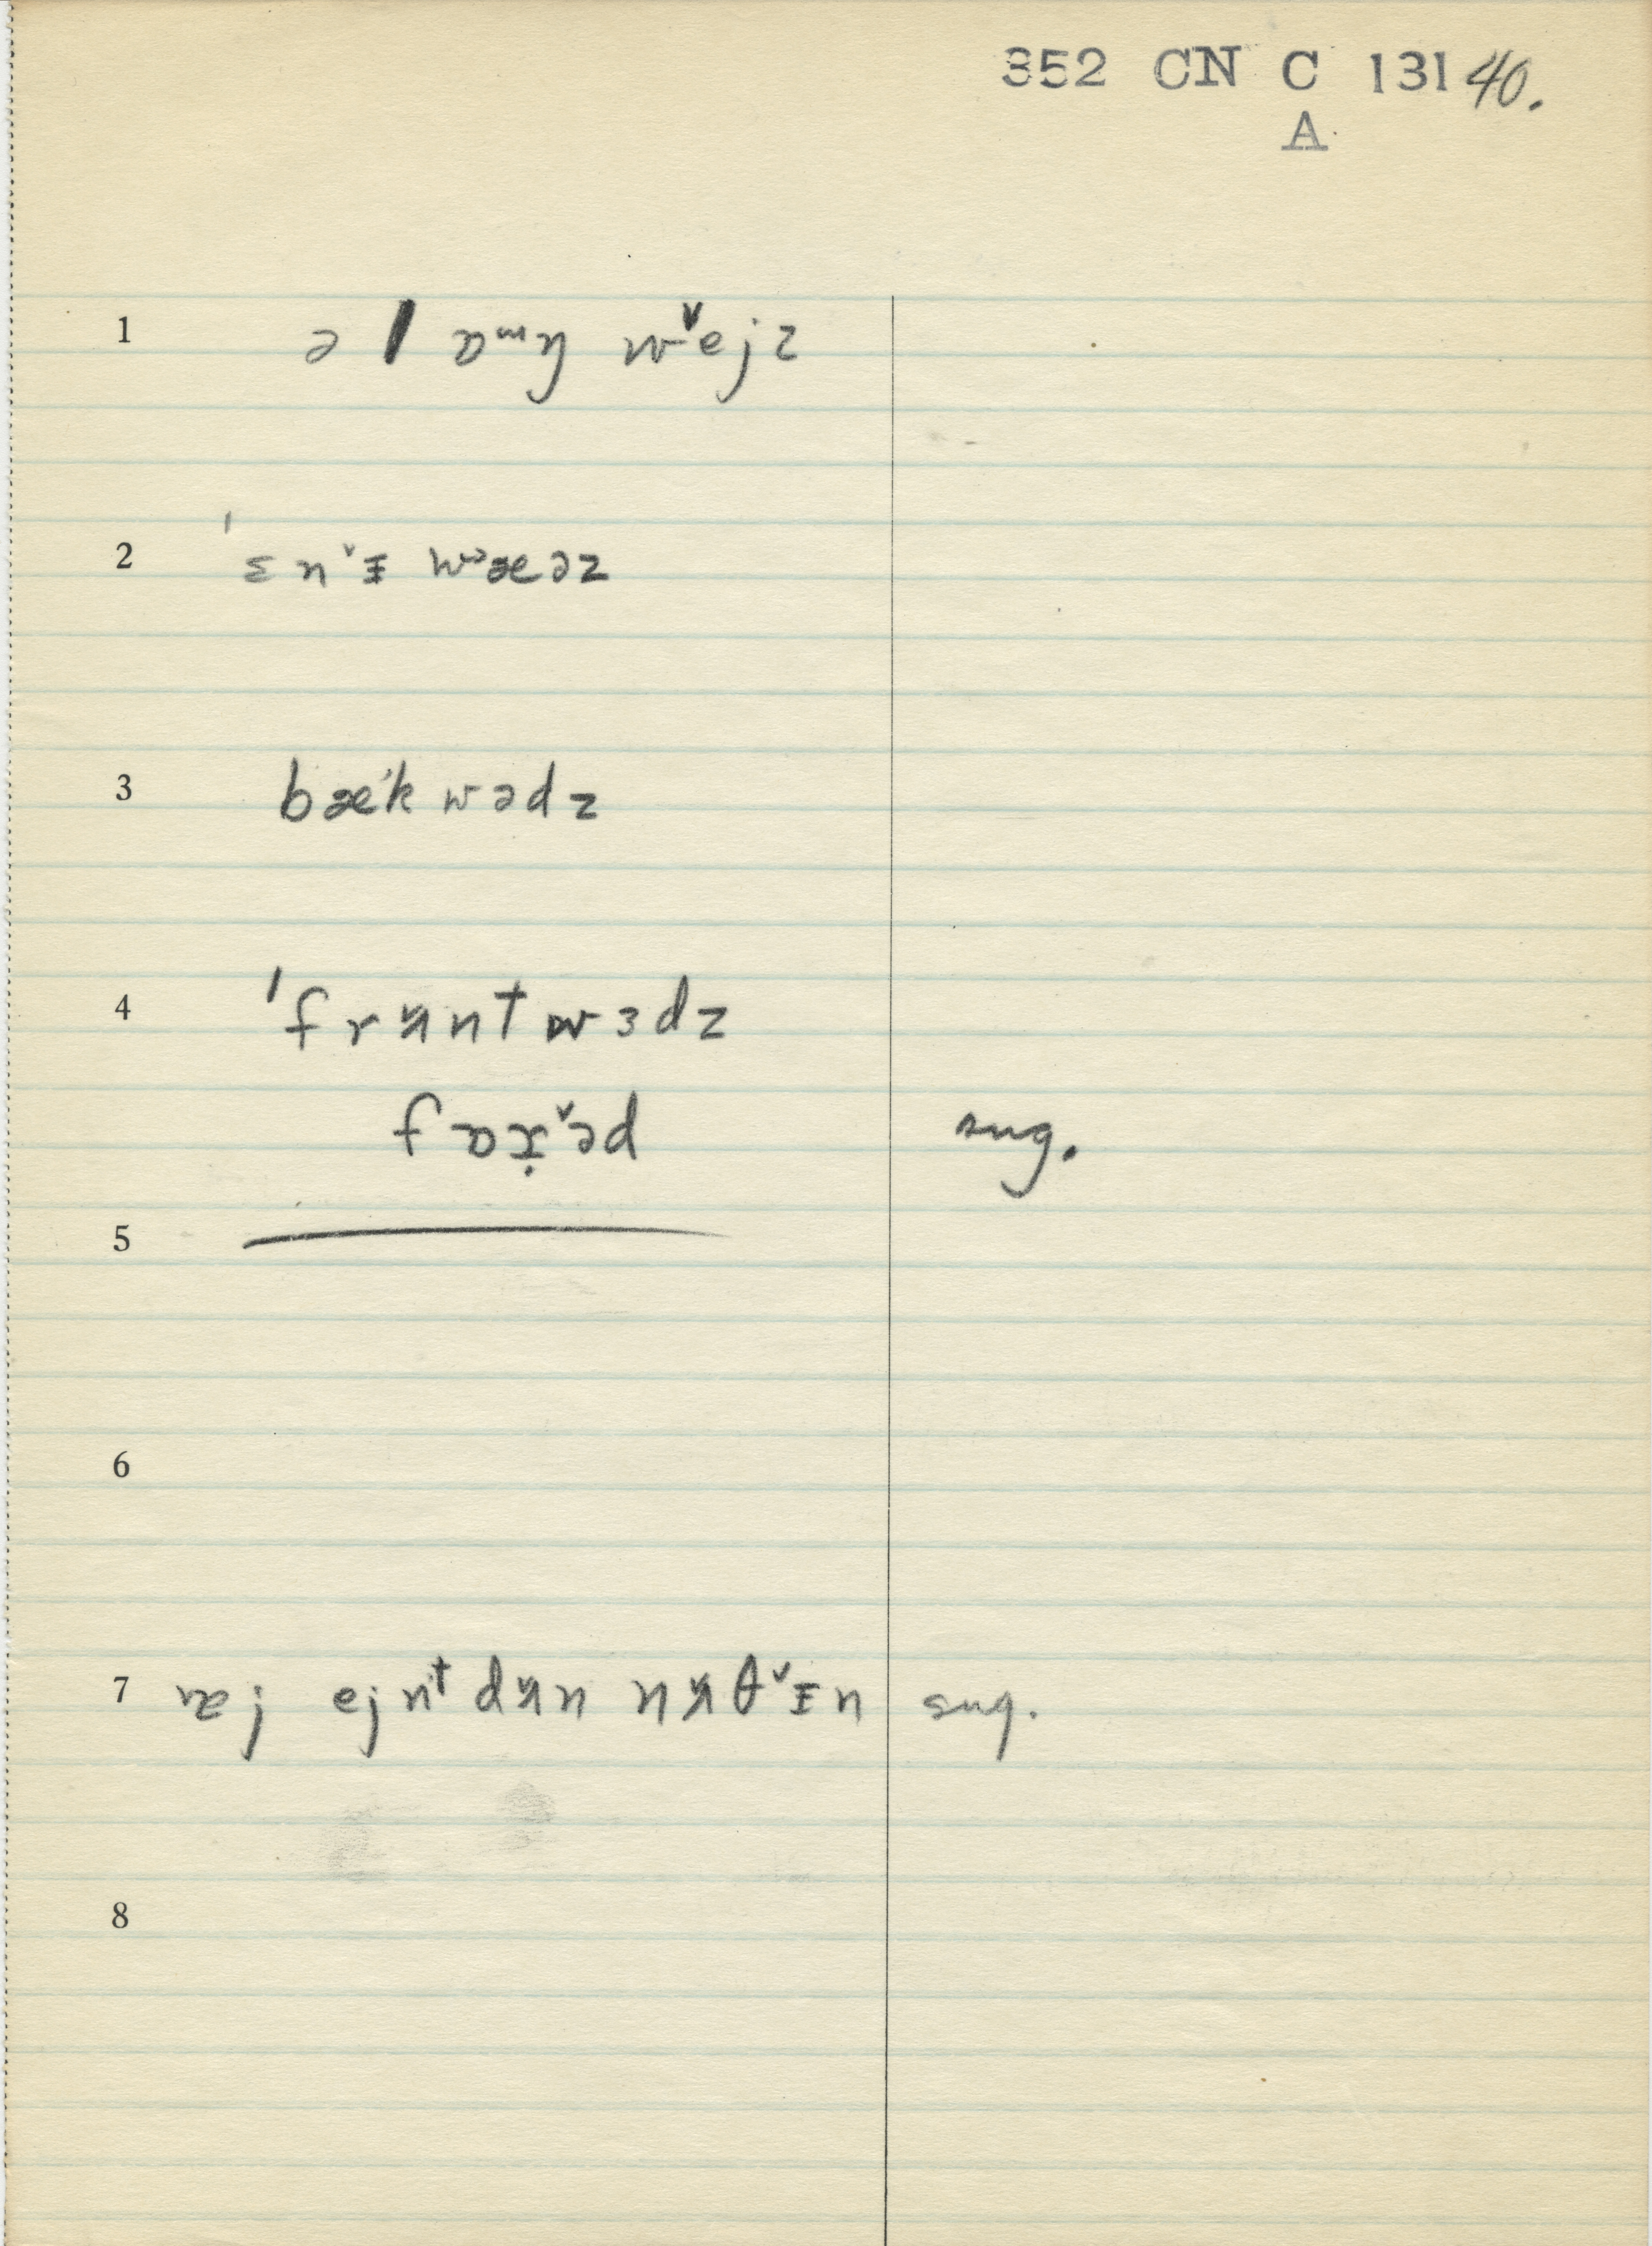 352 CN C 131 40.
A
1 ə l ɒʷŋ w˅ejz
2 ˈɛn˅ɪ wˀæəz
3 bæ'kwədz
4 ˈfrʌntwɜdz
fɒɹ̣˅əd sug.
5
6
7 ɐj ejnᵗ dʌn nʌθ˅ɪn sug.
8